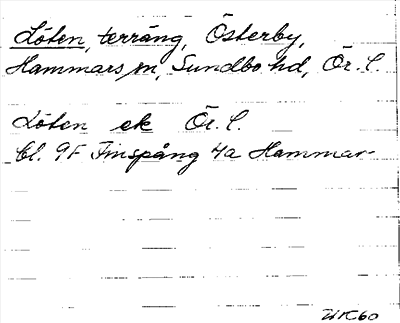 Löten, terräng, Österby,
Hammars sn, Sundbo hd, Ör. l.
Löten ek Ör. l.
bl. 9F Finspång 4a Hammar